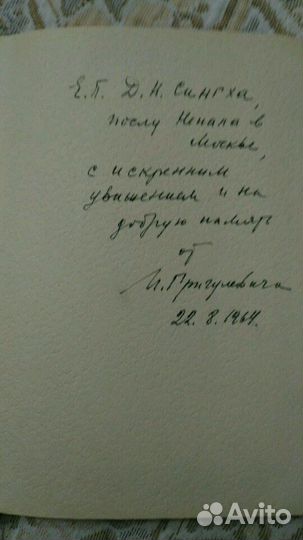 Е.П. Д.Н. Сингха,
послу Непала в
Москве,
с искренним
уважением и на
добрую память
от
И. Григулевича
22.8.1964.
Avito